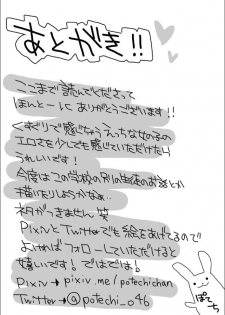 あとがき!!
ここまで読んでくださって
ほんとーにありがとうございます!!
くすぐりで感じちゃうえっちな女の子の
エロさを少しでも感じていただけたら
うれしいです!
今度はこの学校の別の生徒のお話とか
描いたりしようかなぁ…
ネタがつきません 笑
PixivとTwitterでも絵をあげてるので
よければフォローしていただけると
嬉しいです! ではでは!
Pixiv → pixiv.me/potechichan
Twitter → @potechi_046
ぽてち